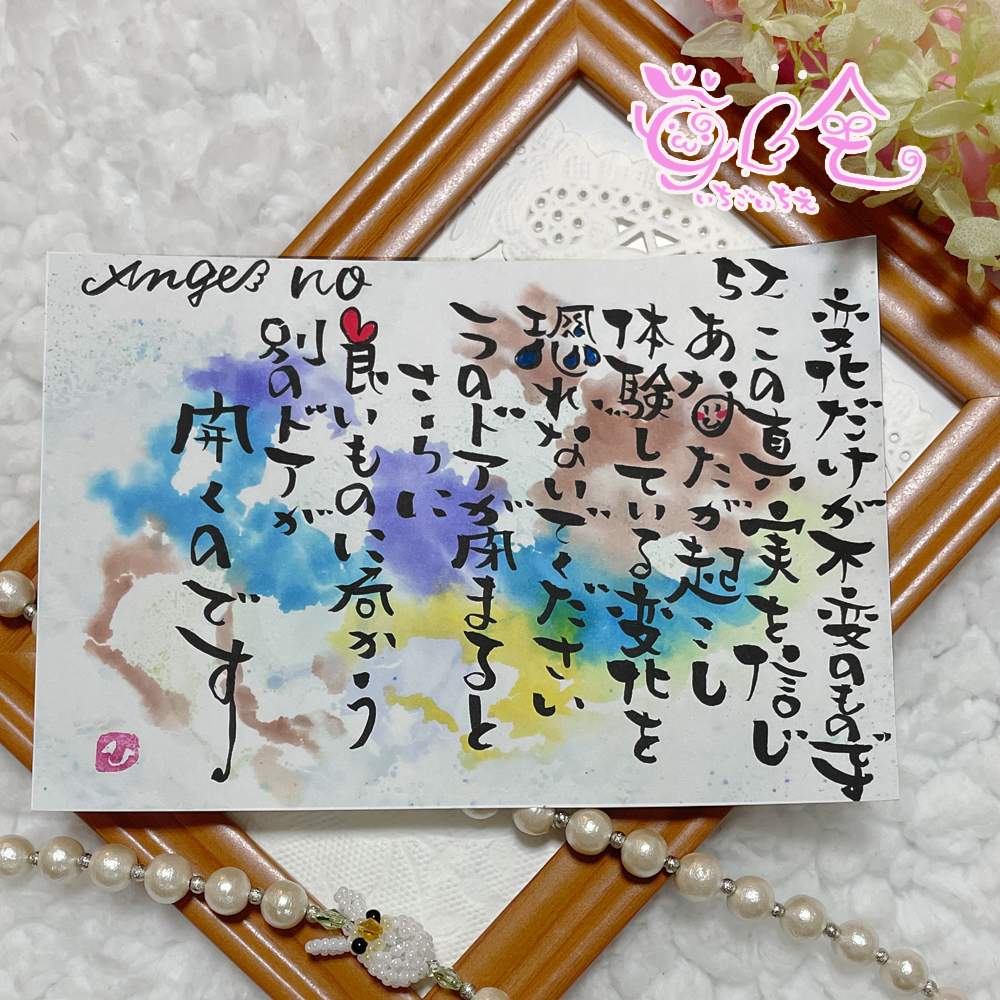 いちごいちえ
Angel no
52
変化だけが不変のものです
この真実を信じ
あなたが起こし
体験している変化を
恐れないでください
一つのドアが閉まると
さらに
良いものに向かう
別のドアが
開くのです